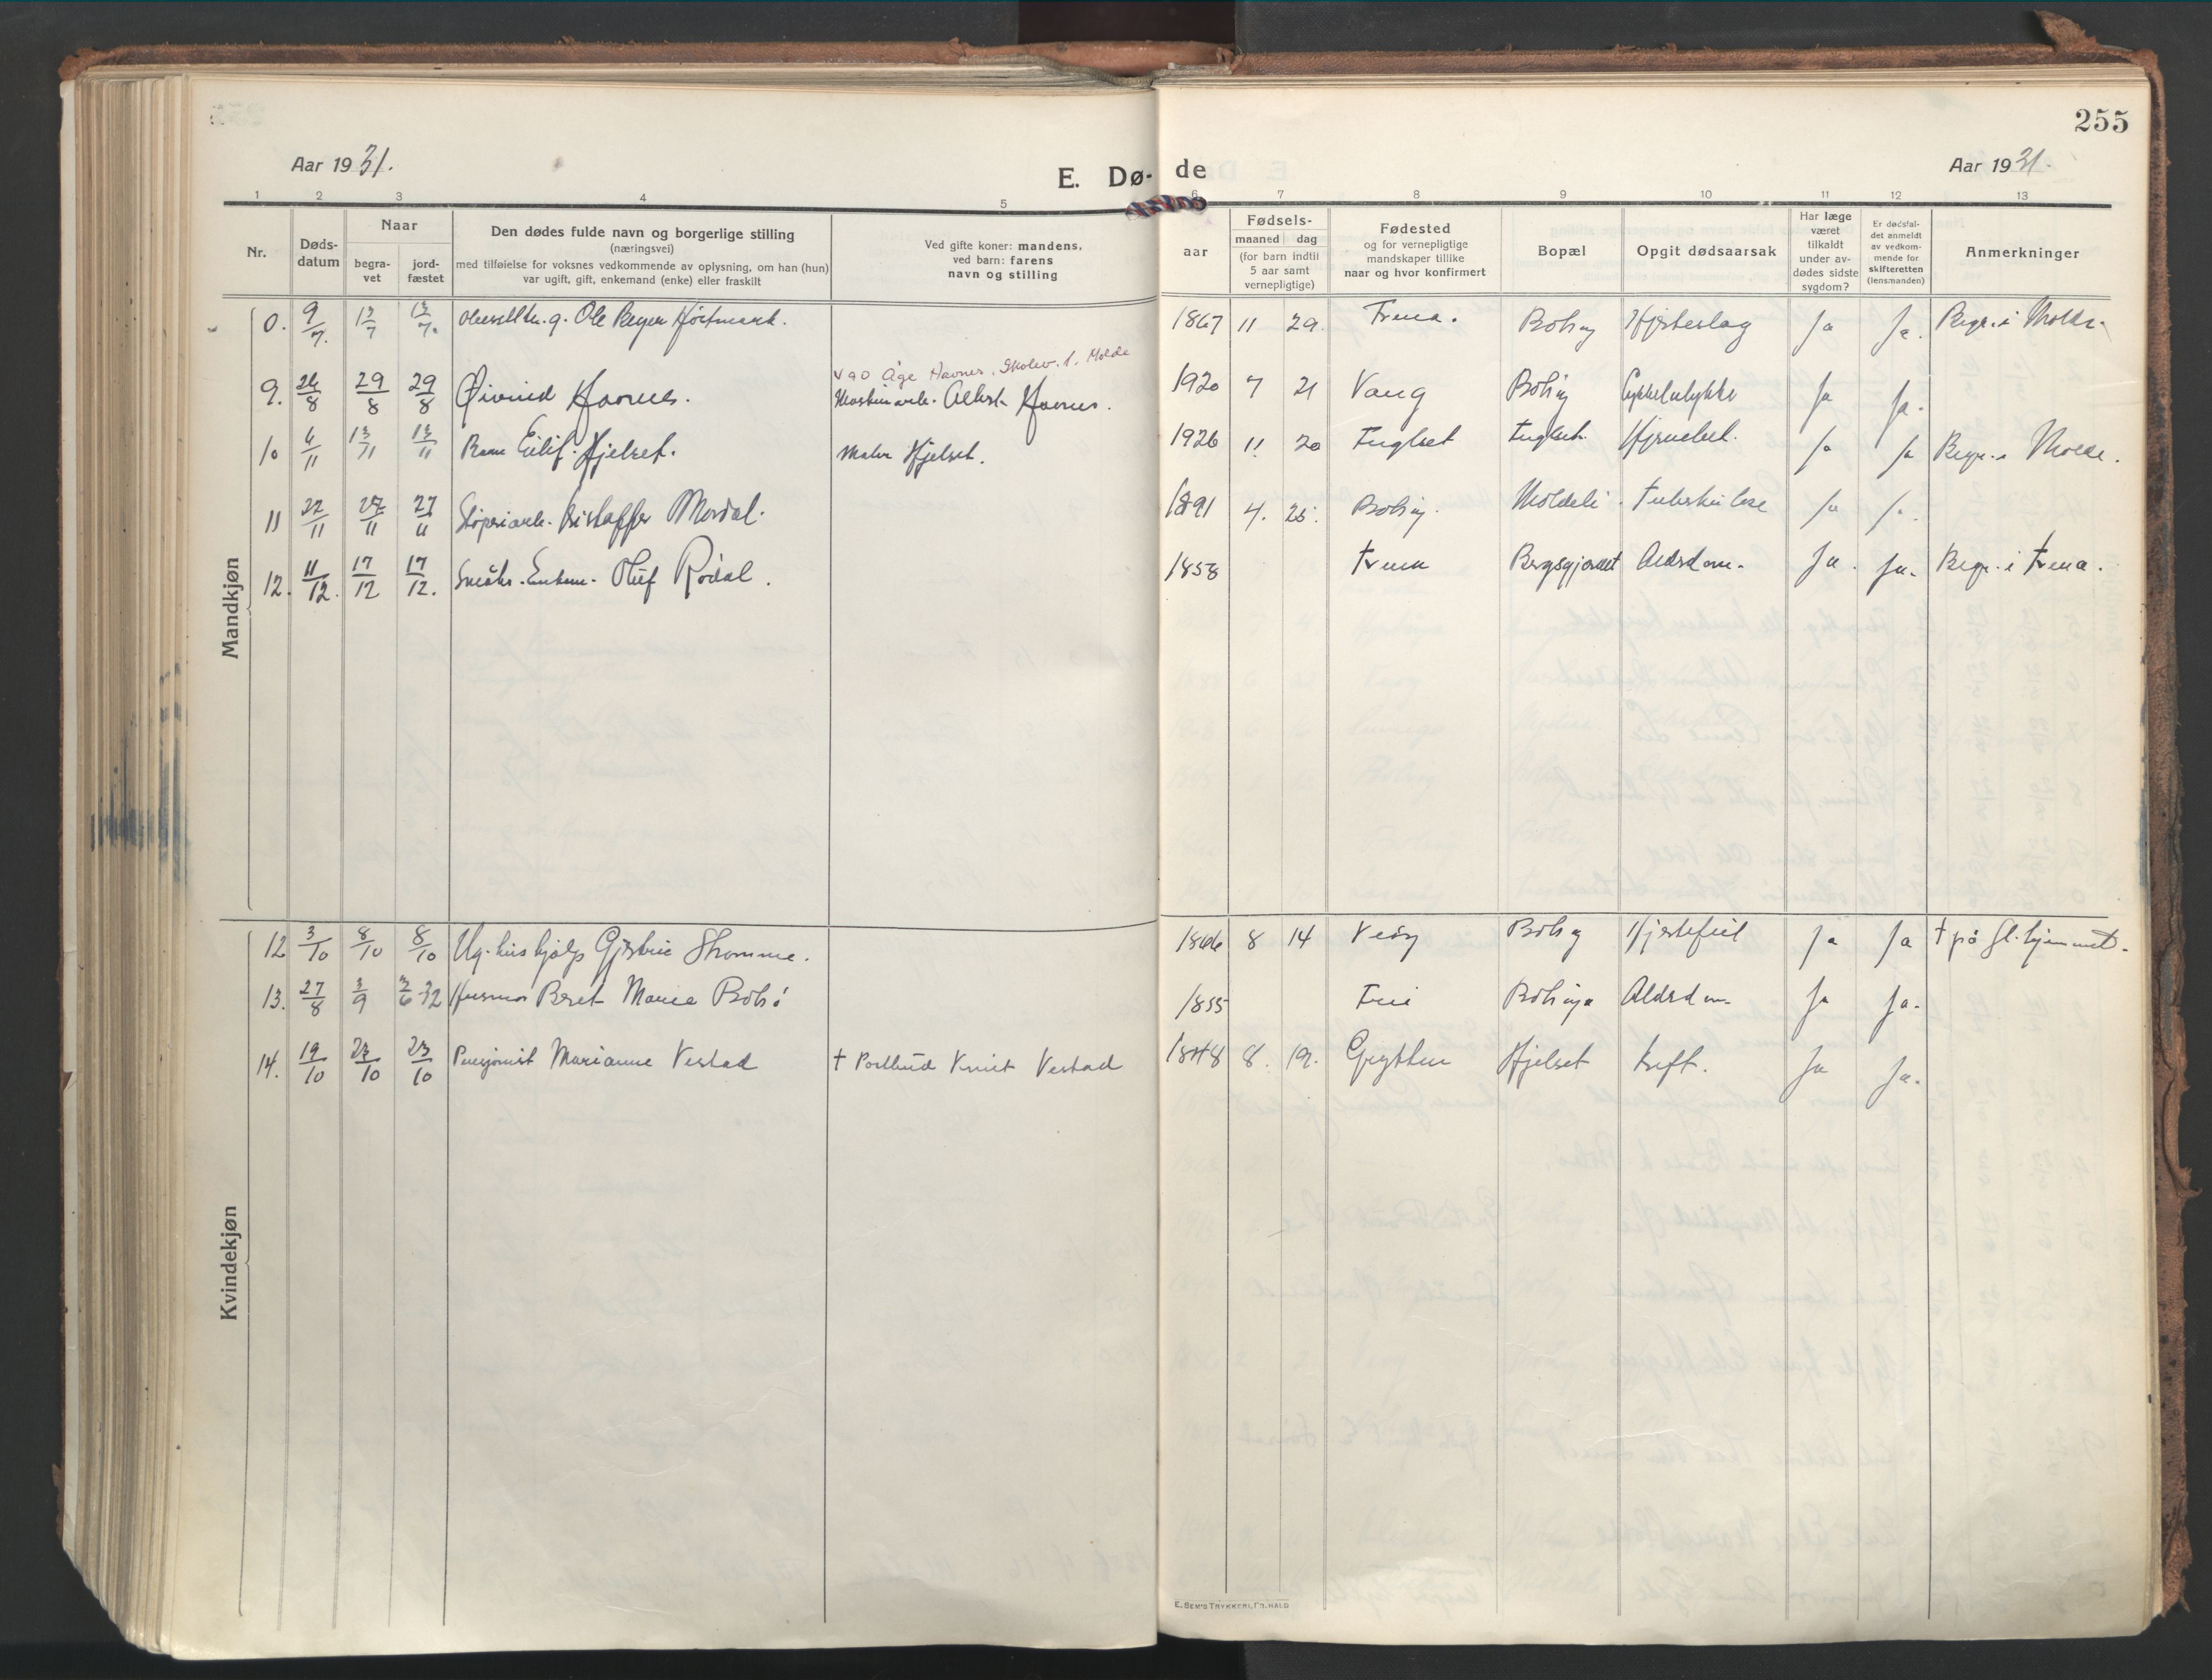 255
Aar 1931.
E. Dø- de
Aar 1931.
1 2 3 4 5 6 7 8 9 10 11 12 13
Nr.
Døds-
datum
Naar
begra-
vet
jord-
fæstet
Den dødes fulde navn og borgerlige stilling
(næringsvei)
med tilføielse for voksnes vedkommende av oplysning, om han (hun)
var ugift, gift, enkemand (enke) eller fraskilt
Ved gifte koner: mandens,
ved barn: farens
navn og stilling
aar
Fødsels-
maaned dag
(for barn indtil
5 aar samt
vernepligtige)
Fødested
og for vernepligtige
mandskaper tillike
naar og hvor konfirmert
Bopæl
Opgit dødsaarsak
Har læge
været
tilkaldt
under av-
dødes sidste
sygdom?
Er dødsfal-
det anmeldt
av vedkom-
mende for
skifteretten
(lensmanden)
Anmerkninger
Mandkjøn
0. 9/7. 13/7 13/7. g. Ole Beyer 1867 11 29. Frena. Bolsøy Hjerteslag Ja Ja. Begr. i Molde.
Åge Havnes, Skolev. 1. Molde
9. 26/8 29/8 29/8 Øivind Havnes. Maskinarb. Albert Havnes. 1920 7 21 Vang Bolsøy Cykkelulykke Ja Ja.
10 6/11 13/11 13/11 Barn Eilif Hjelset. Maler Hjelset. 1926 11 20 Fuglset Fuglset Ja Ja Begr. i Molde.
11 22/11 27/11 27/11 Støperiarb. Kristoffer Mordal. 1891 4. 25. Bolsøy. Moldeli. Tuberkulose Ja Ja.
12. 11/12. 17/12 17/12. Småbr. Enkem. Oluf Rødal. 1858 Frena Bergsgjerdet Aldrdom. Ja. Ja. Begr. i Frena.
Kvindekjøn
12 3/10 8/10 8/10 Ug. hushjelp Gjertine Skomme. 1866 8 14 Veøy Bolsøy Hjertefeil Ja Ja † på gl. hjemmet.
13. 27/8 3/9 3/6 32 Husmor Beret Marie Bolsø 1855 Frei Bolsøya Aldrdom Ja Ja.
14. 19/10 23/10 23/10 Pensjonist Marianne Vestad † Postbud Knut Vestad 1848 8. 19. Grytten Hjelset Kreft. Ja Ja.
E. SEM'S TRYKKERI, FR.HALD